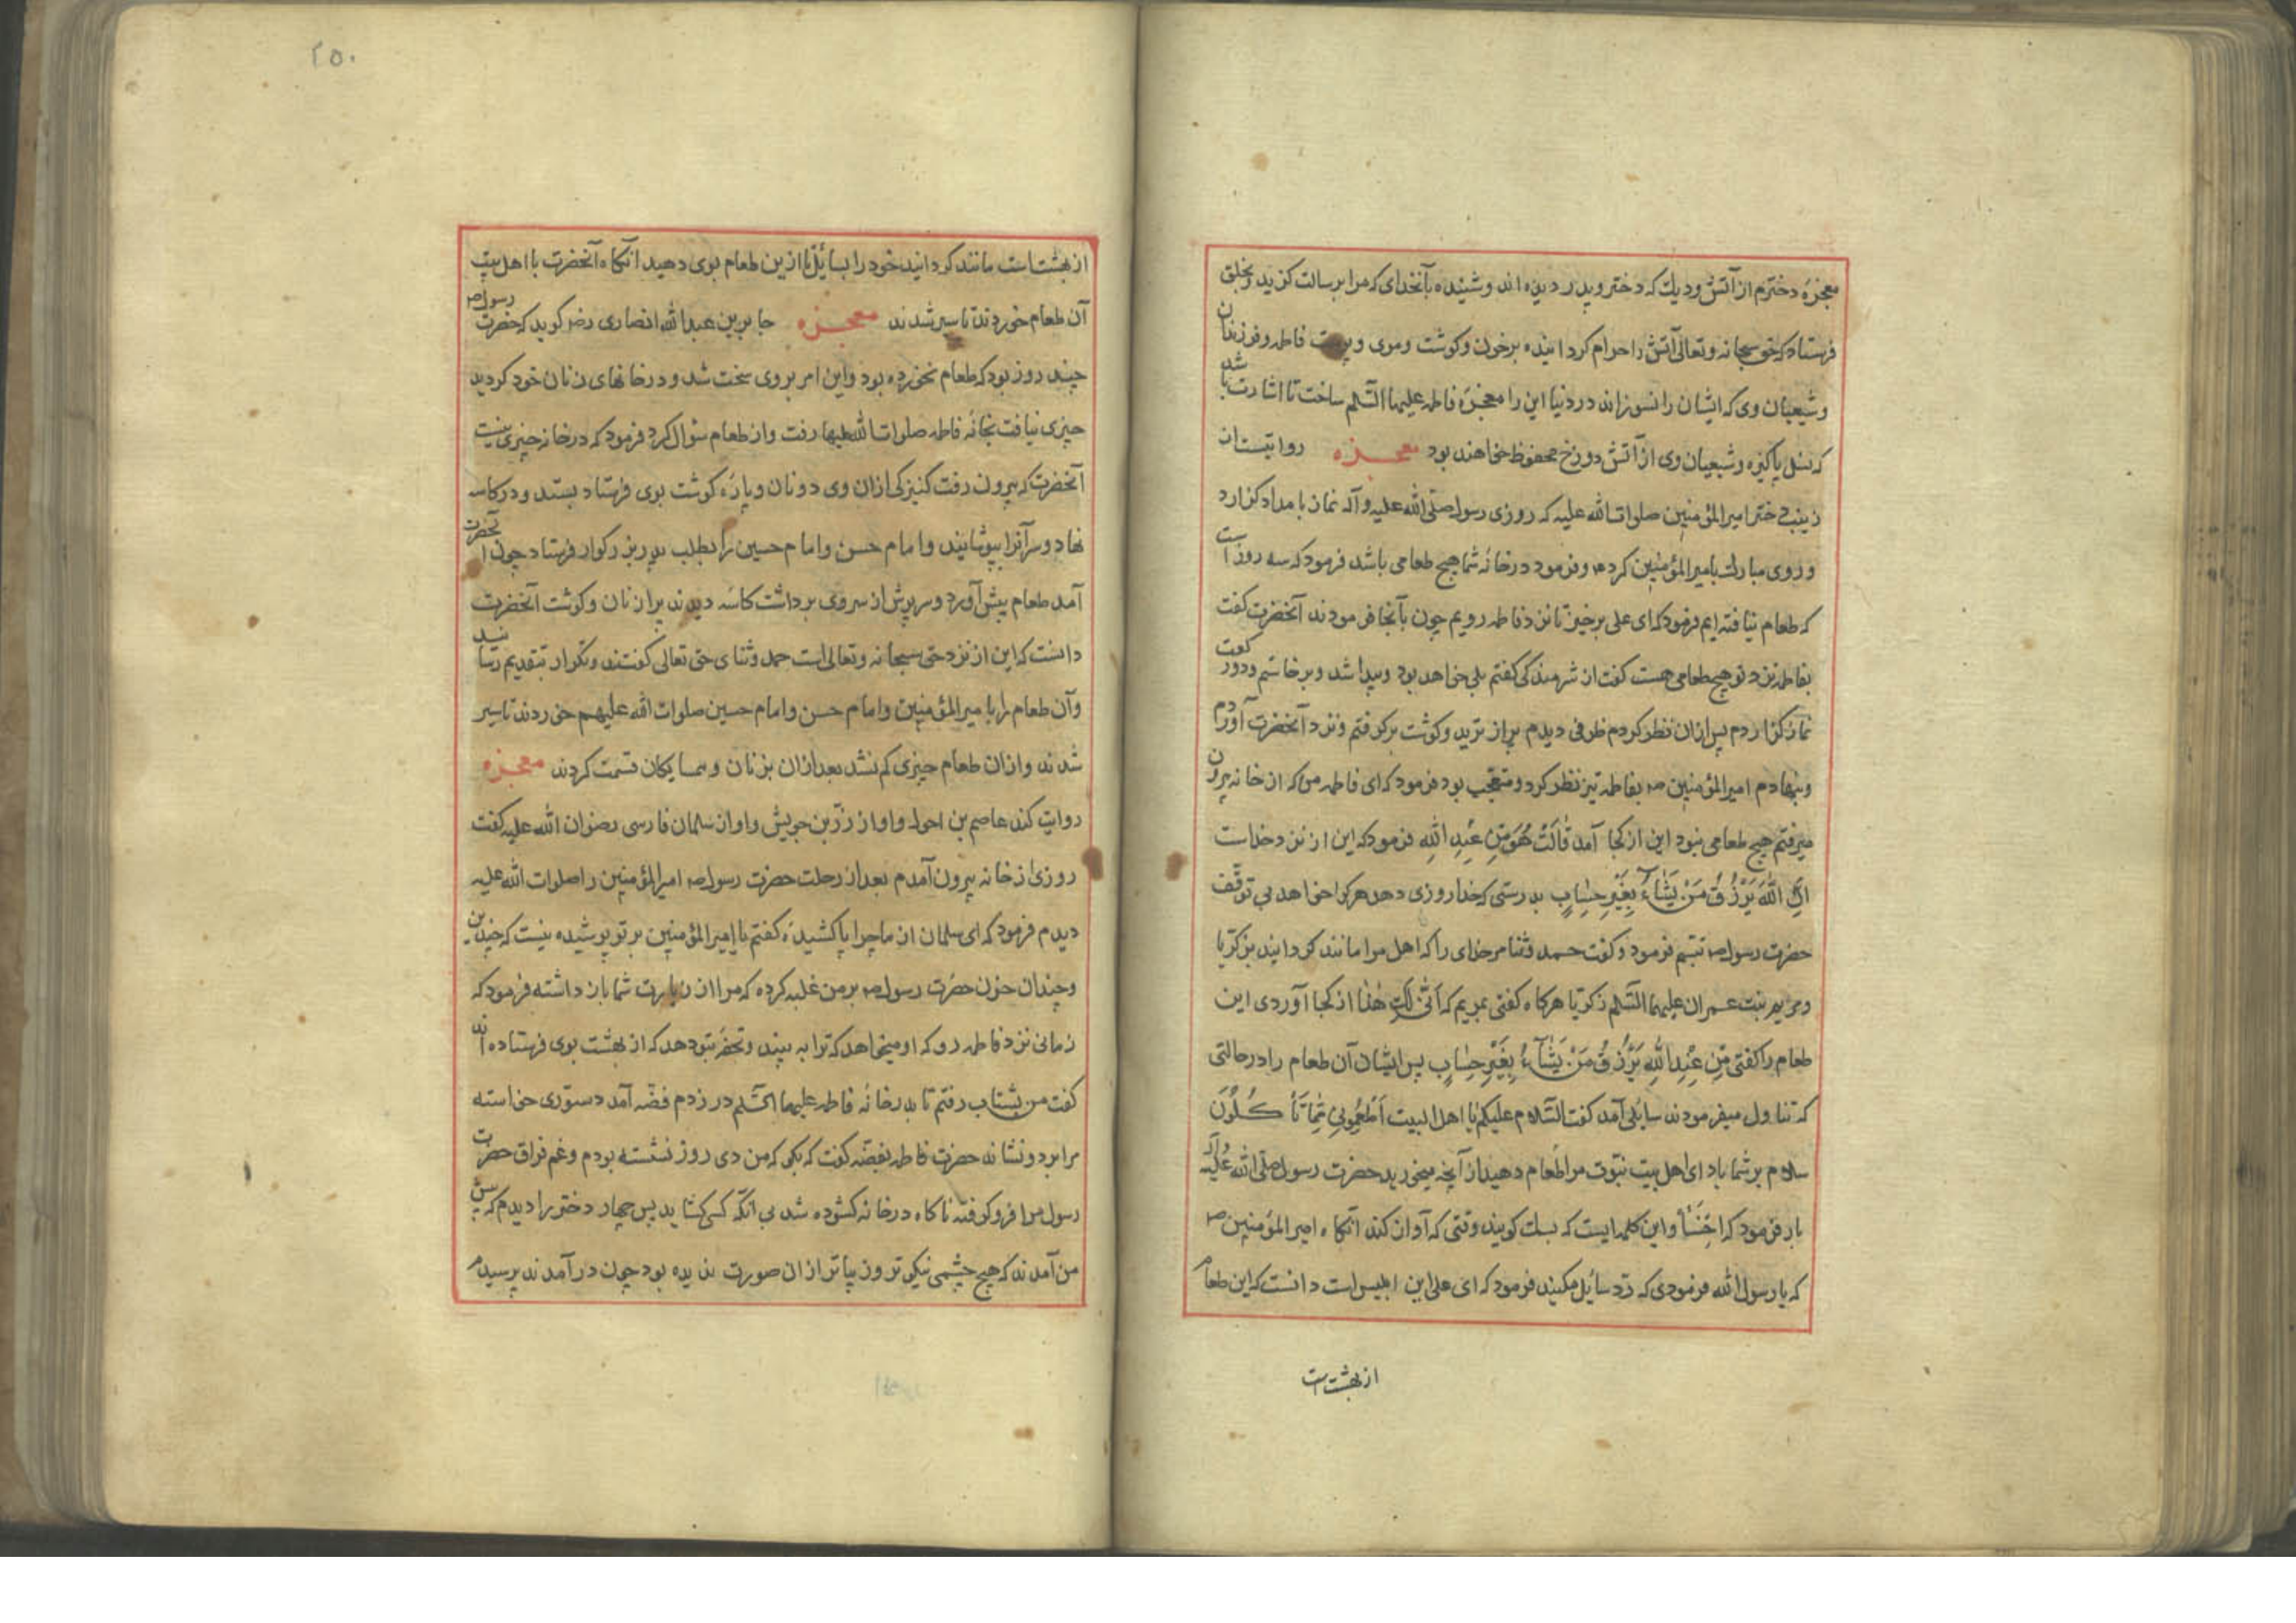 معجزهٔ دخترم از آتش و دیك که دختر و پدر دیده اند و شنیده بآنخدای که مرا برسالت کزید و بخلق
فرستاد که حق سبحانه و تعالی آتش را حرام کردانیده بر خون و کوشت و موی و پوست فاطمه و فرزندان
و شیعیان وی که ایشان را نسوزاند در دنیا این را معجزهٔ فاطمه علیها السّلم ساخت تا اشارت باشد
که نسل پاکیزه و شیعیان وی از آتش دوزخ محفوظ خواهند بود معجزه روایتست از
زینب دختر امیر المؤمنین صلوات الله علیه که روزی رسول صلّی الله علیه و آله نماز بامداد کزارد
و روی مبارك بامیر المؤمنین کرد و فرمود در خانهٔ شما هیچ طعامی باشد فرمود که سه روز است
که طعام نیافته ایم فرمود که ای علی برخیز تا نزد فاطمه رویم چون بآنجا فرمودند آنحضرت کفت
بفاطمه نزد تو هیچ طعامی هست کفت از شرمندکی کفتم بلی خواهد بود و پیدا شد و برخاستم و دو رکعت
نماز کزاردم پس ازان نظر کردم ظرفی دیدم پر از ترید و کوشت برکرفتم و نزد آنحضرت آوردم
و بنهادم امیر المؤمنین ص بفاطمه تیز نظر کرد و متعجّب بود فرمود که ای فاطمه من که از خانه بیرون
میرفتم هیچ طعامی نبود این از کجا آمد قَالَتْ هُوَ مِنْ عِنْدِ اللهِ فرمود که این از نزد خداست
اِنَّ اللهَ یَرْزُقُ مَنْ یَشَآءُ بِغَیْرِ حِسٰابٍ بدرستی که خدا روزی دهد هرکرا خواهد بی توقّف
حضرت رسول ص تبسّم فرمود و کفت حمد و ثنا مر خدای را که اهل مرا مانند کردانید بزکریّا
و مریم بنت عمران علیهما السّلم زکریّا هرکاه کفتی بمریم که اَنّٰی لَكِ هٰذَا از کجا آوردی این
طعام را کفتی مِنْ عِنْدِ اللهِ یَرْزُقُ مَنْ یَشَآءُ بِغَیْرِ حِسٰابٍ پس ایشان آن طعام را در حالتی
که تناول میفرمودند سایلی آمد کفت السّلام علیکم یا اهل البیت اَطْعِمُونِی مِمّٰا تَأْکُلُونَ
سلام بر شما باد ای اهل بیت نبوّت مرا طعام دهید از آنچه میخورید حضرت رسول صلّی الله علیه و آله
بار فرمود که اِخْسَأْ و این کلمه ایست که بسك کویند وقتی که آواز کند آنکاه امیر المؤمنین ص
که یا رسول الله فرمودی که ردّ سایل مکنید فرمود که ای علی این ابلیس است دانست که این طعام
از بهشت است
۲۵۰
از بهشت است مانند کردانید خود را بسایل تا ازین طعام بوی دهید آنکاه آنحضرت با اهل بیت
آن طعام خوردند تا سیر شدند معجزه جابر بن عبدالله انصاری رض کوید که حضرت رسول ص
چند روز بود که طعام نخورده بود و این امر بر وی سخت شد و در خانهای زنان خود کردید
چیزی نیافت بخانهٔ فاطمه صلوات الله علیها رفت و از طعام سؤال کرد فرمود که در خانه چیزی نیست
آنحضرت که بیرون رفت کنیزکی ازان وی دو نان و پارهٔ کوشت بوی فرستاد بستد و در کاسه
نهاد و سر آنرا بپوشانید و امام حسن و امام حسین را بطلب پدر بزرکوار فرستاد چون آنحضرت
آمد طعام پیش آورد و سرپوش از سر وی برداشت کاسه دیدند پر از نان و کوشت آنحضرت
دانست که این از نزد حق سبحانه و تعالی است حمد و ثنای حق تعالی کفتند و تکرار بتقدیم رسانید
و آن طعام را با امیر المؤمنین و امام حسن و امام حسین صلوات الله علیهم خوردند تا سیر
شدند و ازان طعام چیزی کم نشد بعد ازان بزنان و همسایکان قسمت کردند معجزه
روایت کند عاصم بن احول و او از زرّ بن حبیش و او از سلمان فارسی رضوان الله علیه کفت
روزی از خانه بیرون آمدم بعد از رحلت حضرت رسول ص امیر المؤمنین را صلوات الله علیه
دیدم فرمود که ای سلمان از ما چرا پا کشیدهٔ کفتم یا امیر المؤمنین بر تو پوشیده نیست که چندین
و چندان حزن حضرت رسول ص بر من غلبه کرده که مرا از زیارت شما باز داشته فرمود که
زمانی نزد فاطمه رو که او میخواهد که ترا به بیند و تحفه بتو دهد که از بهشت بوی فرستاده اند
کفت من بشتاب رفتم تا بدر خانهٔ فاطمه علیها السّلم در زدم فضّه آمد دستوری خواسته
مرا برد و نشاند حضرت فاطمه بفضّه کفت که بکو که من دی روز نشسته بودم و غم فراق حضرت
رسول مرا فرو کرفته ناکاه در خانه کشوده شد بی آنکه کسی کشاید پس چهار دختر را دیدم که پیش
من آمدند که هیچ چشمی نیکوتر و زیباتر ازان صورت ندیده بود چون در آمدند پرسیدم